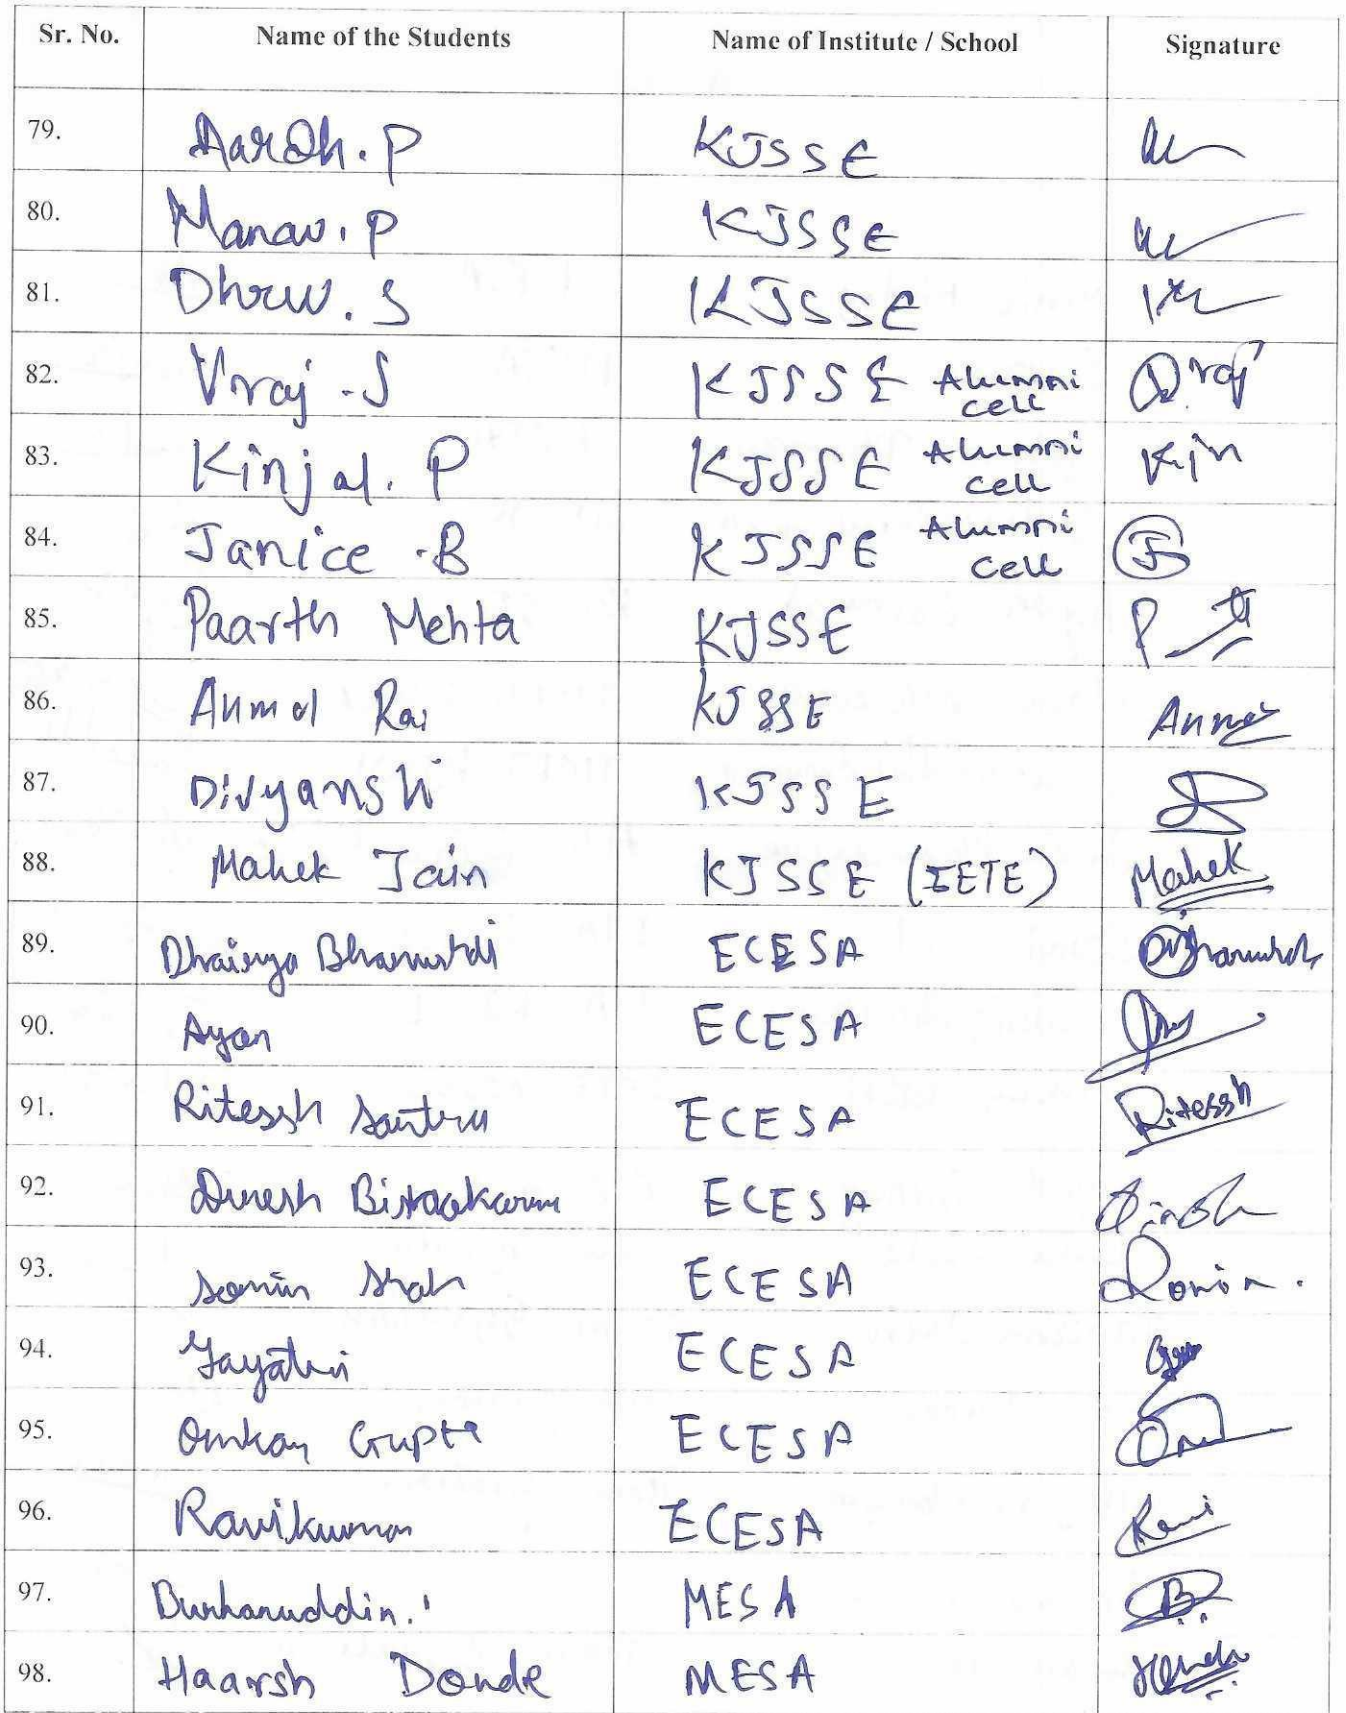 Sr. No. Name of the Students Name of Institute / School Signature
79. Aarsh. P KJSSE
80. Manav. P KJSSE
81. Dhruv. S KJSSE
82. Vraj - S KJSSE Alumni cell Vraj
83. Kinjal. P KJSSE Alumni cell Kin
84. Janice - B KJSSE Alumni cell J
85. Paarth Mehta KJSSE
86. Anmol Rai KJSSE
87. Divyanshi KJSSE
88. Mahek Jain KJSSE (IETE) Mahek
89. Dhairya Bhanushali ECESA
90. Ayan ECESA
91. Ritessh ECESA Ritessh
92. Dinesh ECESA Dinesh
93. Somin Shah ECESA Somin.
94. Gayatri ECESA
95. Omkar Gupta ECESA
96. Ravikumar ECESA Ravi
97. Burhanuddin. MESA B
98. Haarsh Donde MESA